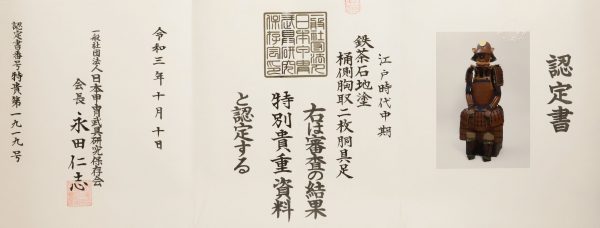 認定書
江戸時代中期
鉄茶石地塗
桶側胸取二枚胴具足
右は審査の結果
特別貴重資料
と認定する
一般社団法人
日本甲冑
武具研究
保存会
令和三年十月十日
一般社団法人日本甲冑武具研究保存会
会長 永田仁志
認定書番号特貴第一九一九号